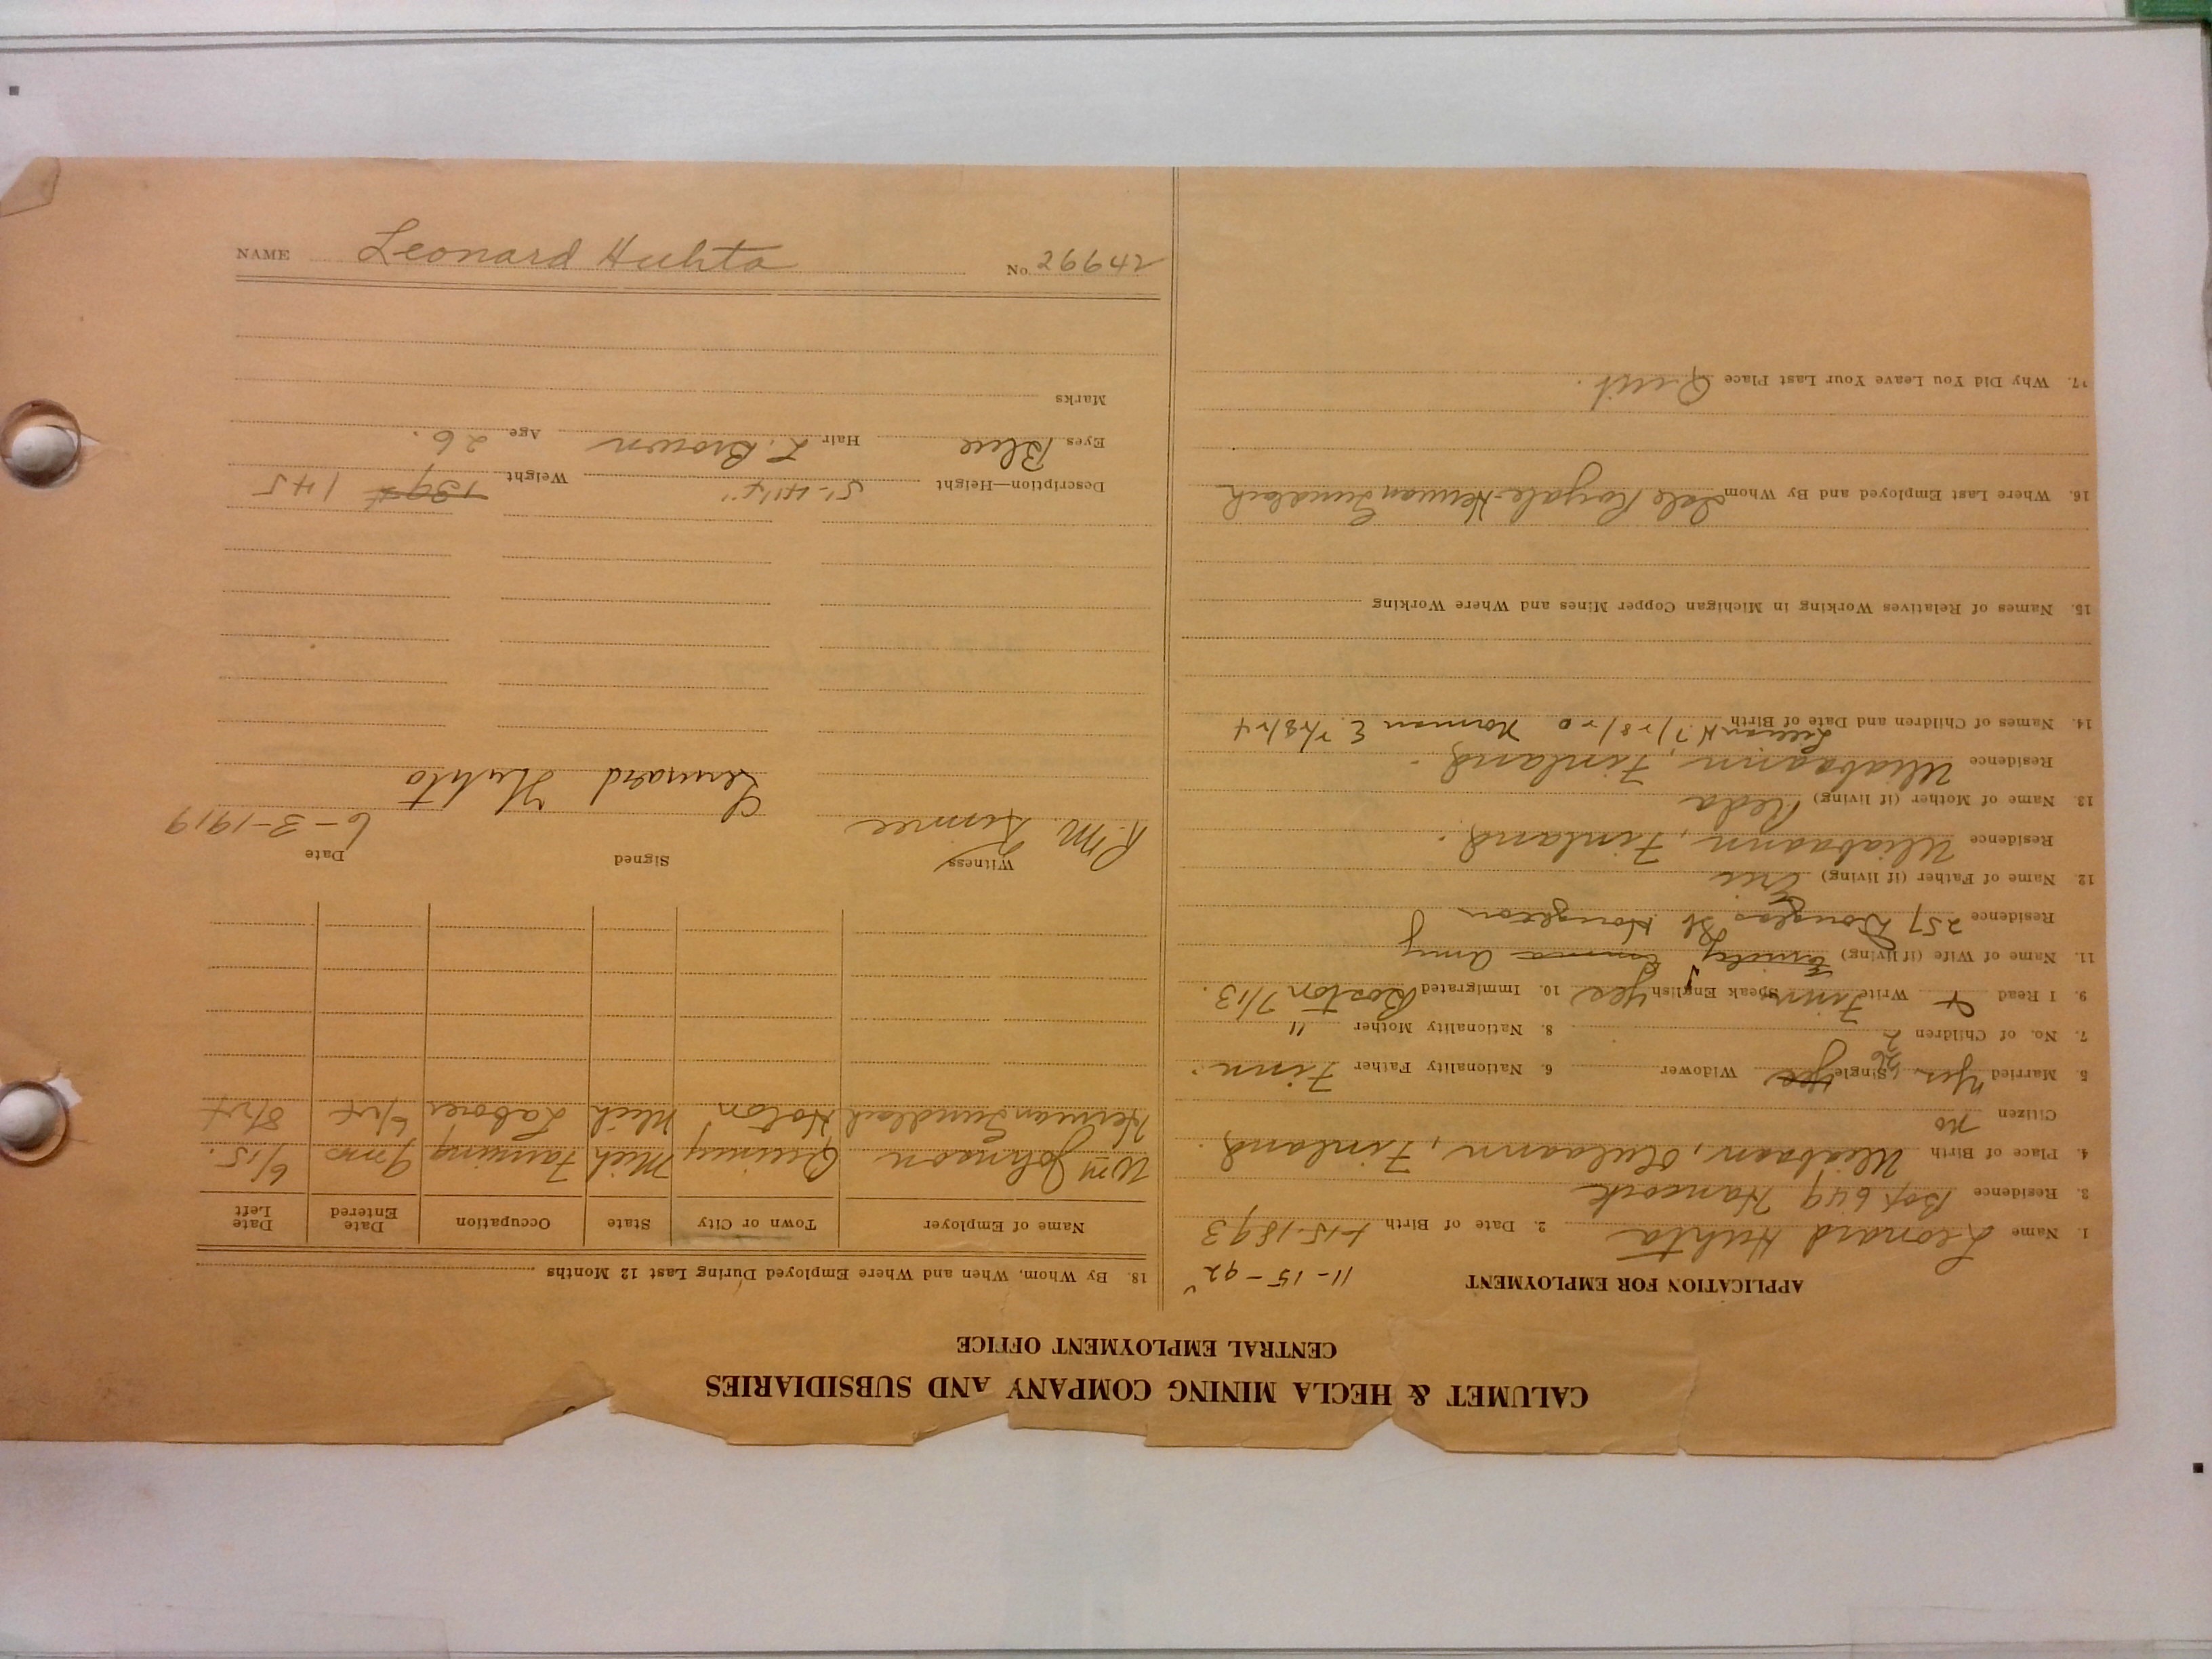 CALUMET & HECLA MINING COMPANY AND SUBSIDIARIES
CENTRAL EMPLOYMENT OFFICE
APPLICATION FOR EMPLOYMENT 11-15-92
1. Name Leonard Huhta 2. Date of Birth 1-15-1893
3. Residence Box 649 Hancock
4. Place of Birth Uliaborn, Finland.
Citizen no
5. Married Yes Single Yes Widower 6. Nationality Father Finn.
7. No. of Children 2 8. Nationality Mother "
9. I Read & Write Finn Speak English Yes 10. Immigrated Boston 7/13.
11. Name of Wife (if living) Emily Amy
Residence 257 Douglas St Houghton
12. Name of Father (if living)
Residence Finland.
13. Name of Mother (if living)
Residence Finland.
14. Names of Children and Date of Birth Lillian H. 7/28/20 Norman E. 2/28/24
15. Names of Relatives Working in Michigan Copper Mines and Where Working
16. Where Last Employed and By Whom Isle Royale-Herman Gundlach
17. Why Did You Leave Your Last Place Quit.
18. By Whom, When and Where Employed During Last 12 Months
Name of Employer Town or City State Occupation Date Entered Date Left
Wm Johnson Quincy Mich Farming 6/15.
Herman Gundlach Hoton Mich Laborer 6/24 8/24
Witness Signed Date
R. M. 6-3-1919
Leonard Huhta
Description—Height 5'-4 1/4" Weight 139 145
Eyes Blue Hair L. Brown Age 26.
Marks
NAME Leonard Huhta No. 26642